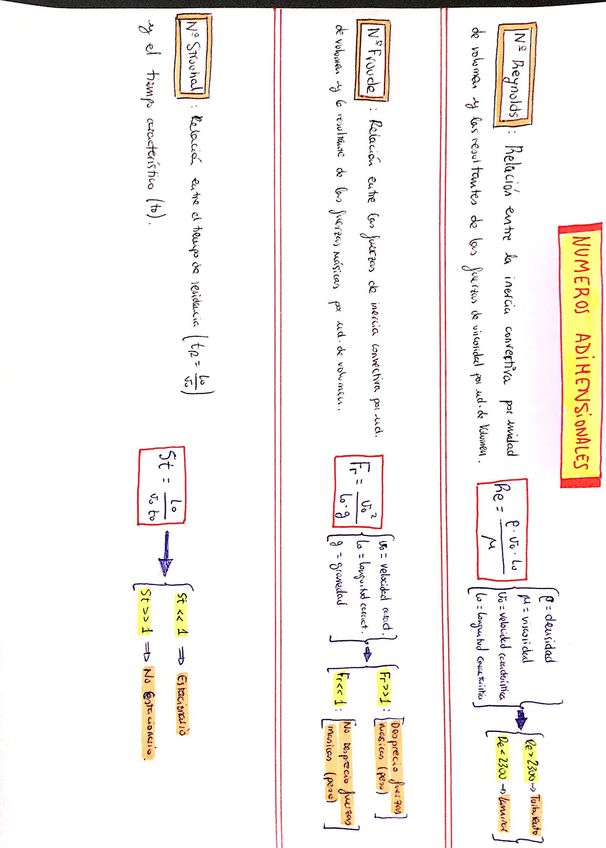 NUMEROS ADIMENSIONALES
Nº Reynolds : Relación entre la inercia convectiva por unidad
de volumen y las resultantes de las fuerzas de viscosidad por ud. de volumen.
Re = ρ · v₀ · L₀ / μ
ρ = densidad
μ = viscosidad
v₀ = velocidad característica
L₀ = longitud característica
Re > 2300 → Turbulento
Re < 2300 → Laminar
Nº Froude : Relación entre las fuerzas de inercia convectiva por ud.
de volumen y la resultante de las fuerzas másicas por ud. de volumen.
Fr = v₀² / L₀ · g
v₀ = velocidad caract.
L₀ = longuitud caract.
g = gravedad
Fr >> 1 : Desprecio fuerzas
masicas (peso)
Fr << 1 : No desprecio fuerzas
masicas (peso)
Nº Strouhal : Relación entre el tiempo de residencia (tR = L₀ / v₀)
y el tiempo característico (to).
St = L₀ / v₀ t₀
St << 1 ⇒ Estacionario
St >> 1 ⇒ No Estacionario.